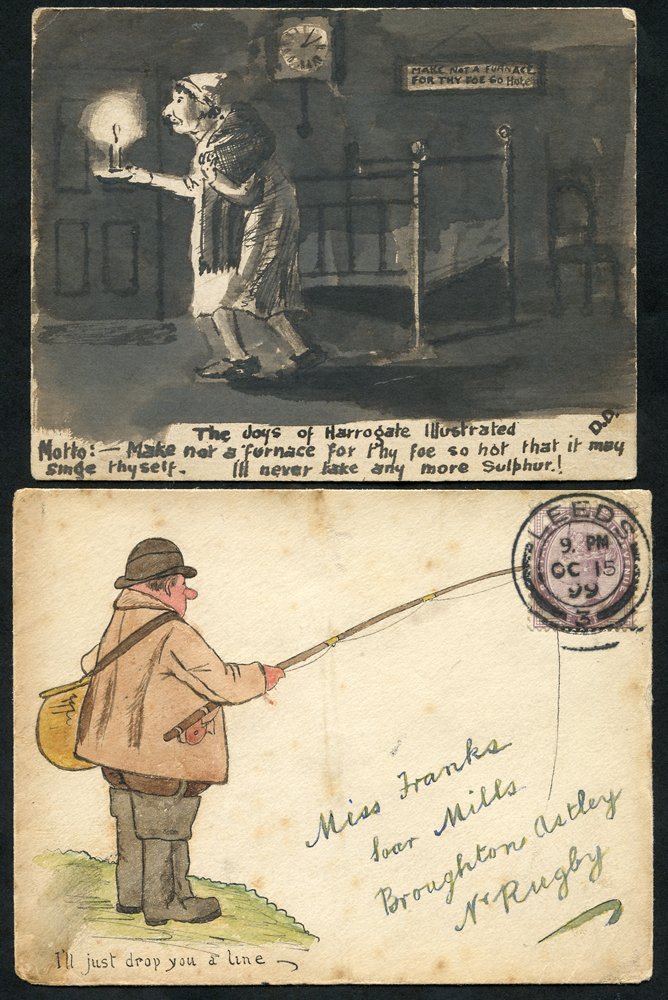 MAKE NOT A FURNACE
FOR THY FOE SO Hote
The Joys of Harrogate Illustrated
D.D.
Motto:— Make not a furnace for thy foe so hot that it may
singe thyself. Ill never take any more Sulphur!
LEEDS
9. PM
OC 15
99
3
Miss Franks
Soar Mills
Broughton Astley
Nr Rugby
I'll just drop you a line